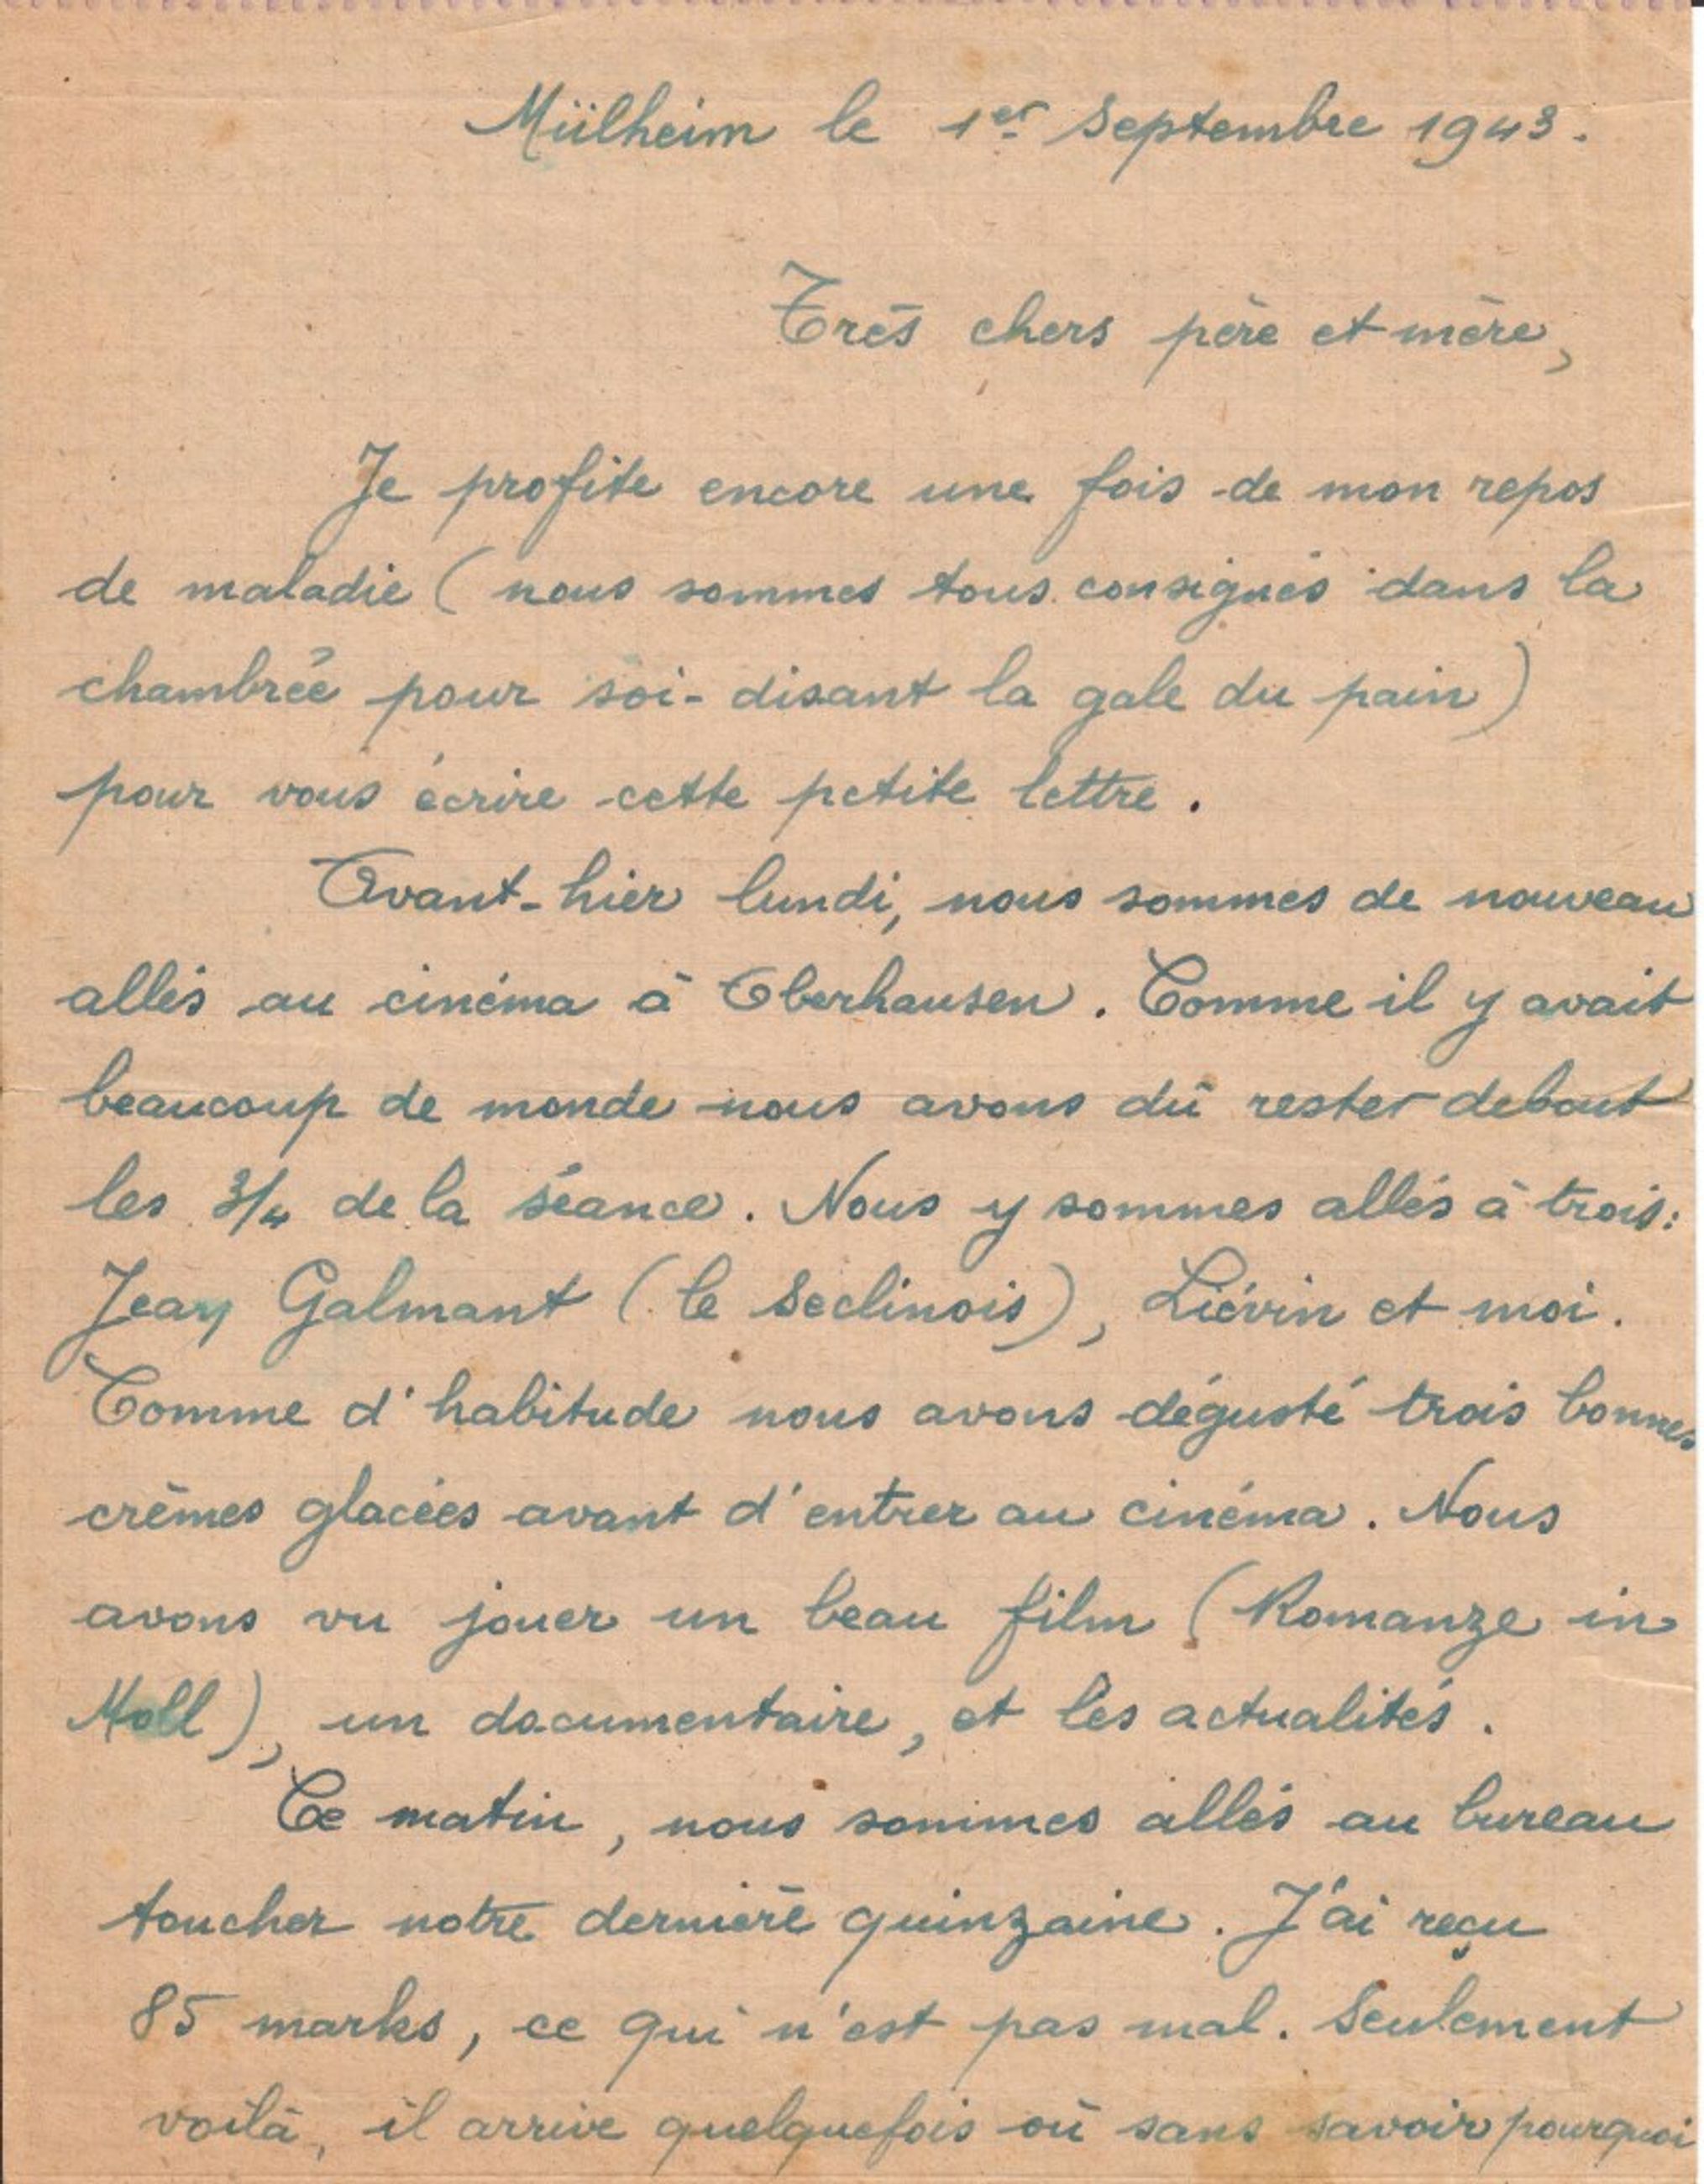 Mülheim le 1er Septembre 1943.
Très chers père et mère,
Je profite encore une fois de mon repos
de maladie (nous sommes tous consignés dans la
chambrée pour soi-disant la gale du pain)
pour vous écrire cette petite lettre.
Avant-hier lundi, nous sommes de nouveau
allés au cinéma à Oberhausen. Comme il y avait
beaucoup de monde nous avons dû rester debout
les 3/4 de la séance. Nous y sommes allés à trois:
Jean Galmant (le Seclinois), Liévin et moi.
Comme d'habitude nous avons dégusté trois bonnes
crèmes glacées avant d'entrer au cinéma. Nous
avons vu jouer un beau film (Romanze in
Moll), un documentaire, et les actualités.
Ce matin, nous sommes allés au bureau
toucher notre dernière quinzaine. J'ai reçu
85 marks, ce qui n'est pas mal. Seulement
voilà, il arrive quelquefois où sans savoir pourquoi